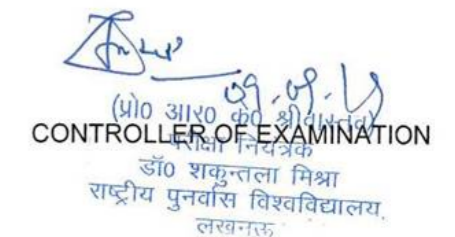 (प्रो0 आर0 के0 श्रीवास्तव)
CONTROLLER OF EXAMINATION
परीक्षा नियंत्रक
डॉ0 शकुन्तला मिश्रा
राष्ट्रीय पुनर्वास विश्वविद्यालय,
लखनऊ